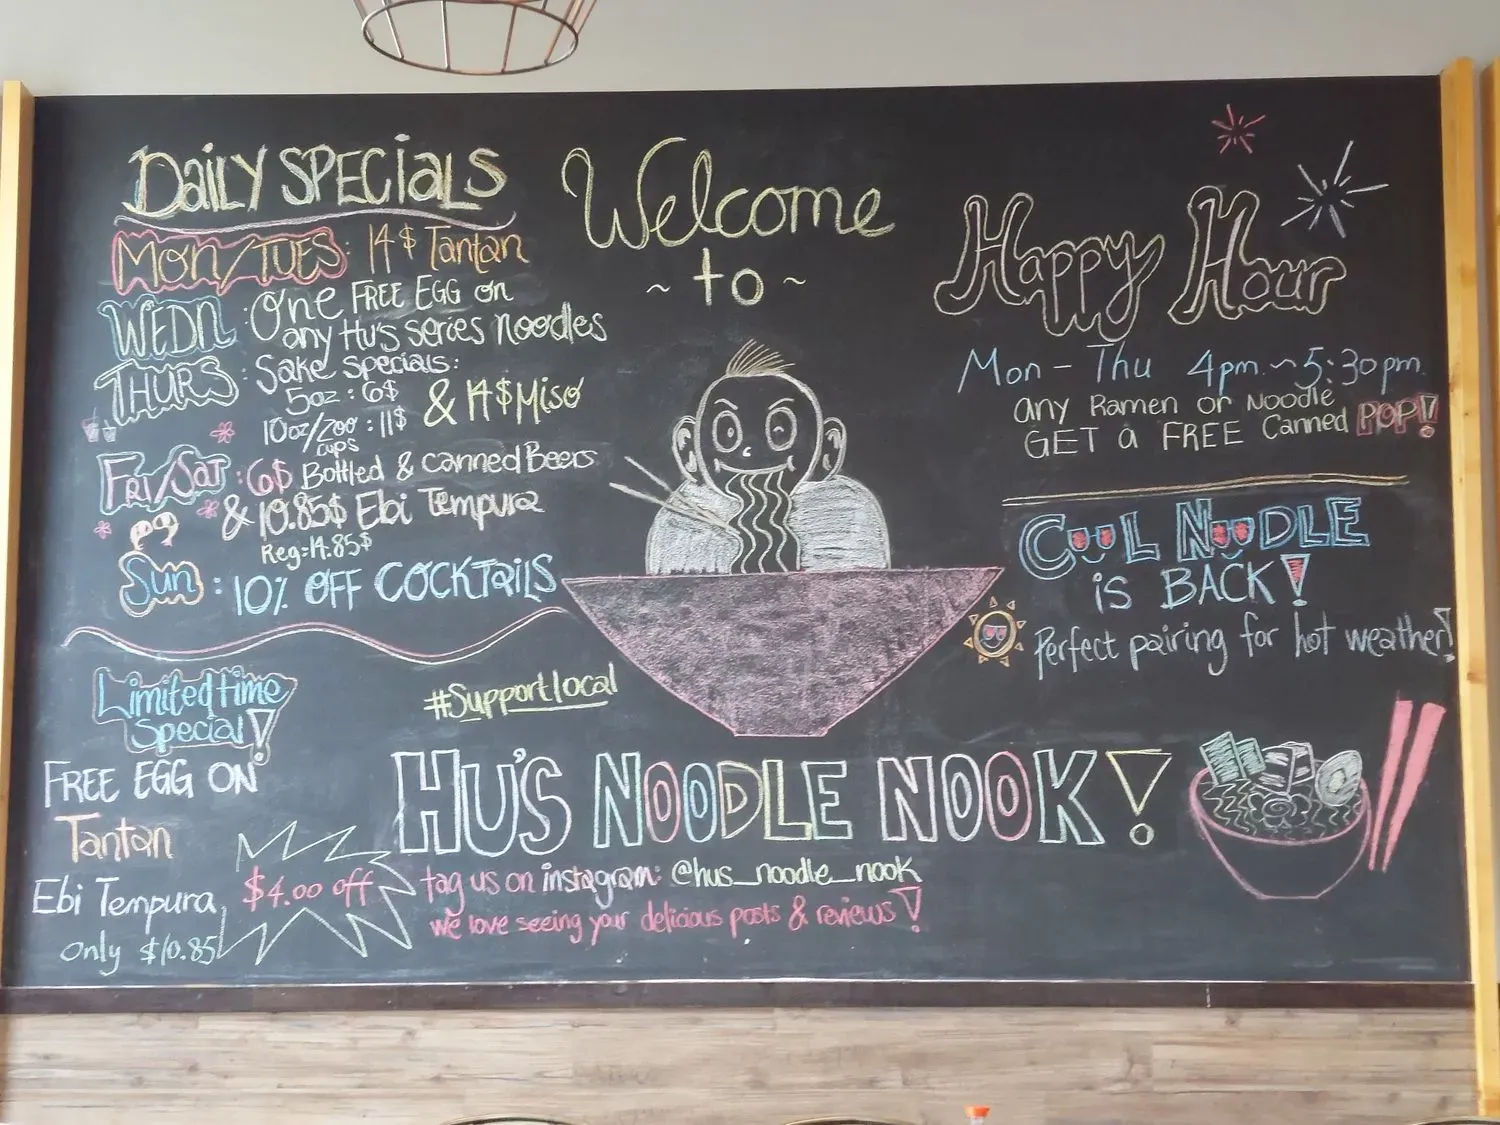 Daily Specials
Mon/Tues: 14$ Tantan
Wedn: One FREE EGG on
any Hu's series noodles
Thurs: Sake Specials:
5oz : 6$
& 14$ Miso
10oz/200 : 11$
cups
Fri/Sat: 6$ Bottled & canned Beers
& 10.85$ Ebi Tempura
Reg: 14.85$
Sun: 10% OFF COCKTAILS
Limited time
Special!
FREE EGG ON
Tantan
Ebi Tempura,
$4.00 off
Only $10.85
Welcome
~ to ~
#Supportlocal
HU'S NOODLE NOOK!
tag us on instagram: @hus_noodle_nook
we love seeing your delicious posts & reviews!
Happy Hour
Mon - Thu 4pm ~ 5:30pm.
any Ramen or Noodle
GET a FREE Canned POP!
COOL NOODLE
is BACK!
Perfect pairing for hot weather!